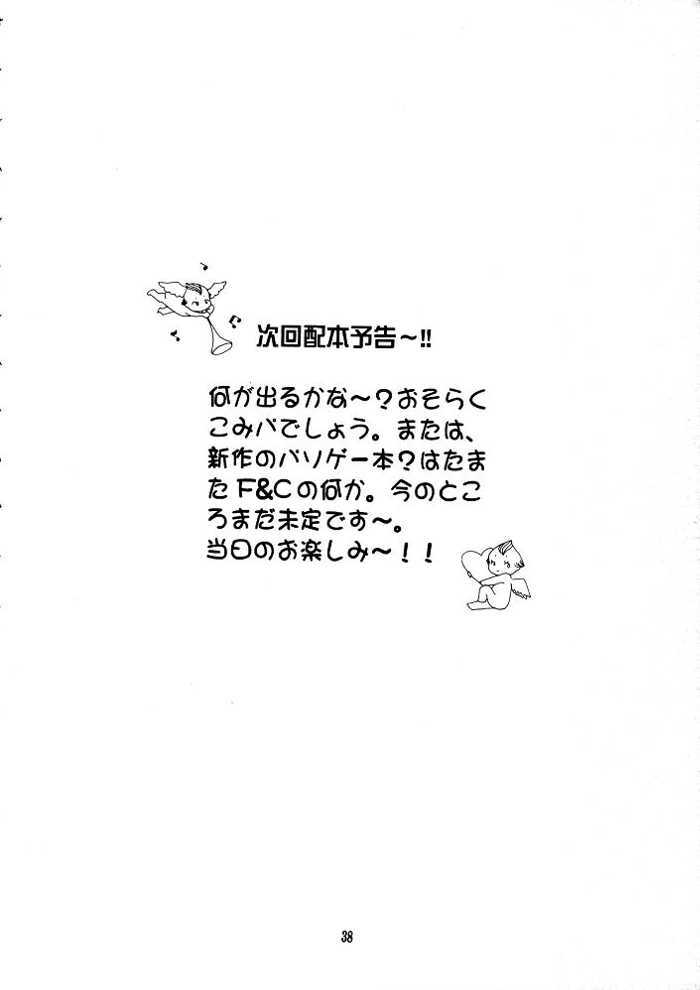 次回配本予告～!!
何が出るかな～？おそらく
こみパでしょう。または、
新作のパソゲー本？はたま
たF&Cの何か。今のとこ
ろまだ未定です～。
当日のお楽しみ～！！
38